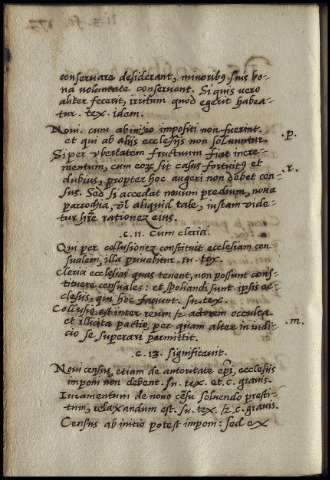 conservare desiderant, minoribus suis bo-
na voluntate conservent. Si quis vero
aliter fecerit, irritum quod egerit habea-
tur. tex. idem.
Novi, cum ab initio impositi non fuerint
et qui ab aliis ecclesiis non solvuntur. .p.
Si per ubertatem fructuum fiat incre-
mentum, cum eorum sit casus fortuitus et .r.
dubius, propter hoc augeri non debet cen-
sus. Sed si accedat novum predium, nova
parrochia, vel aliquid tale, iustam vide-
tur habere rationem eius.
.c. 11. Cum clerici.
Qui per collusionem constituit ecclesiam cen-
sualem, illa privabitur. su. tex.
Clerici ecclesias quas tenent, non possunt cons-
tituere censuales: et spoliandi sunt ipsis ec-
clesiis, qui hoc faciunt. su. tex.
Collusio est inter reum et actorem occulta
et illicita pactio, per quam alter in iudi- .m.
cio se superari permittit.
.c. 13. significavit.
Novi census, etiam de autoritate epi, ecclesiis
imponi non debent. su. tex. et. c. gravis.
Iuramentum de novo censu solvendo presti-
tum, relaxandum est. su. tex. et. c. gravis.
Census ab initio potest imponi: sed ex